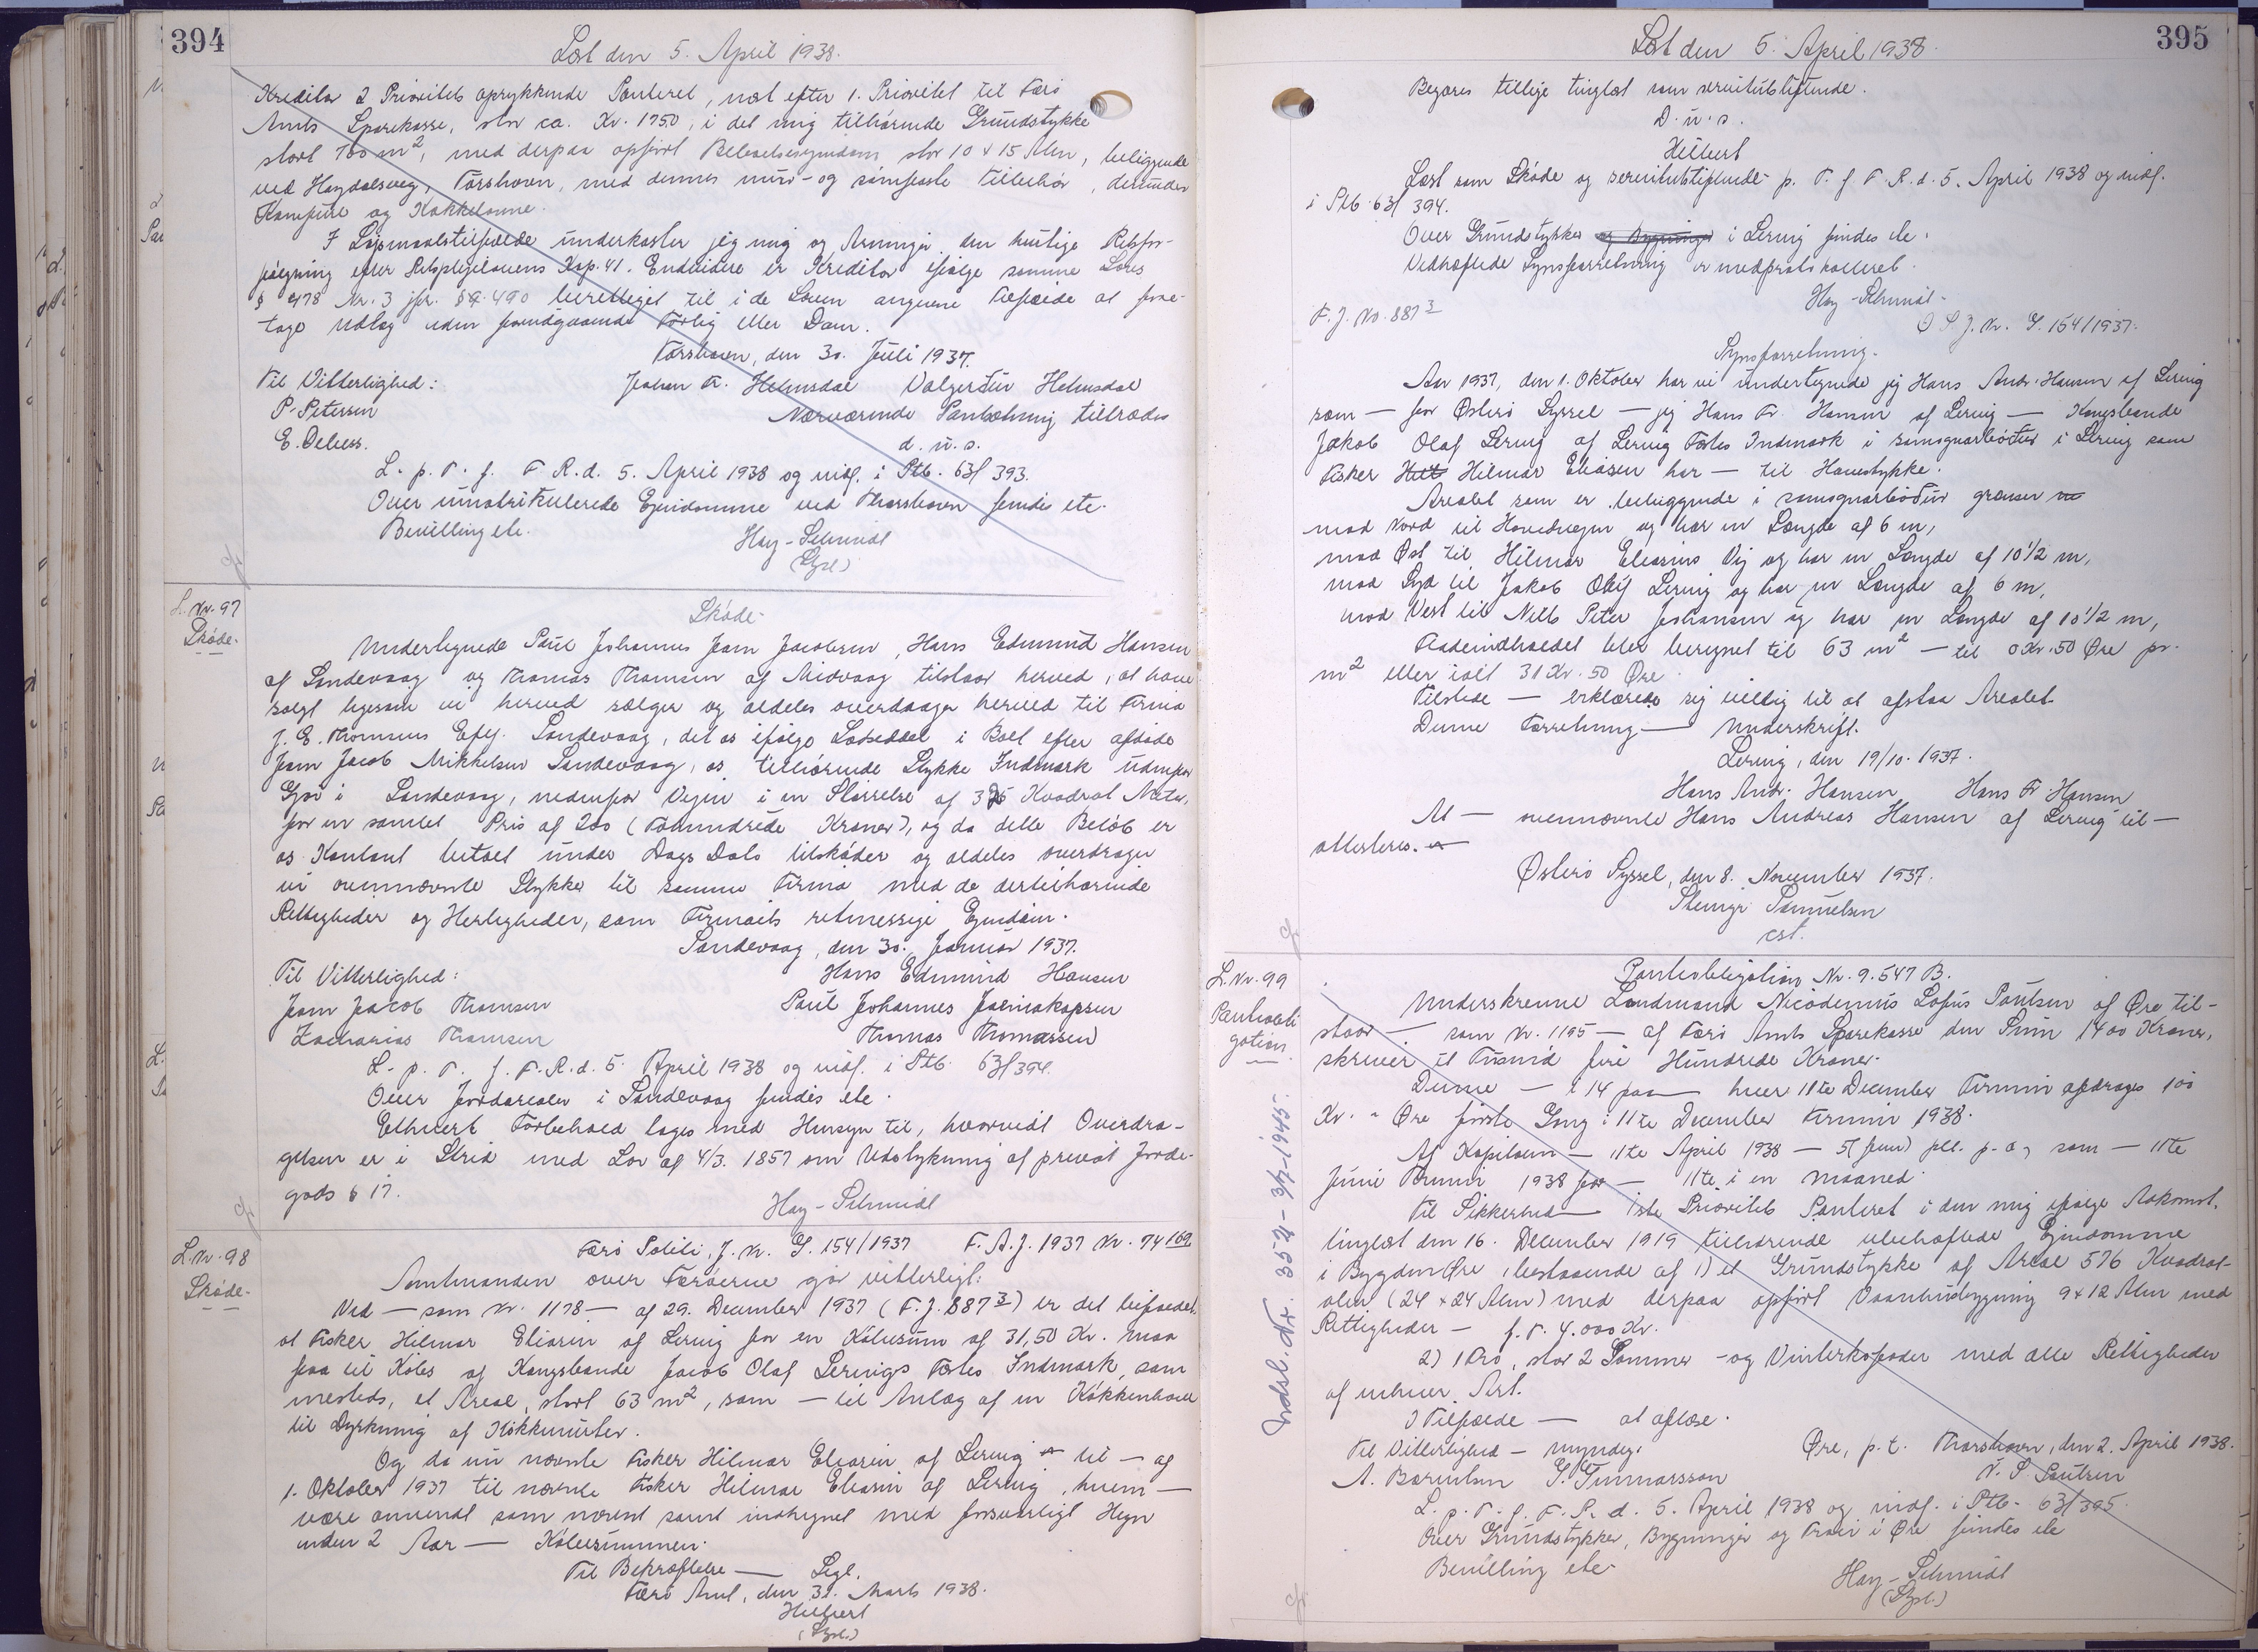 394
Læst den 5. April 1938.
Kreditor 2 Prioritets oprykkende Panteret, næst efter 1. Prioritet til Færø
Amts Sparekasse, stor ca. Kr. 1750, i det mig tilhørende Grundstykke
stort 700 m², med derpaa opført Beboelsesejendom stor 10 x 15 Alen, beliggende
ved Hoydalsveg, Tórshavn, med dennes mur- og sømfaste Tilbehør, derunder
Komfure og Kakkelovne.
I Søgsmaalstilfælde underkaster jeg mig og Arvinger den hurtige Retsfor-
følgning efter Retsplejelovens Kap. 41. Endvidere er Kreditor ifølge samme Lovs
§ 478 Nr. 3 jfr. § 490 berettiget til i de Loven angivne Tilfælde at fore-
tage Udlæg uden forudgaaende Forlig eller Dom.
Tórshavn, den 30. Juli 1937.
Til Vitterlighed: Johan Fr. Helmsdal Valgerður Helmsdal
P. Petersen Nærværende Pantsætning tiltrædes
E. Debess. d. u. s.
L. p. T. f. F. R. d. 5. April 1938 og indf. i Ptb. 63/393.
Over umatrikulerede Ejendomme ved Thorshavn findes ete.
Bevilling ete.
Hay-Schmidt
(Sgl.)
L. Nr. 97
Skøde.
Skøde
Undertegnede Paul Johannes Joen Jacobsen, Hans Edmund Hansen
af Sandevaag og Thomas Thomsen af Midvaag tilstaar herved, at have
solgt ligesom vi herved sælger og aldeles overdrager herved til Firma
J. E. Thomsens Eftf. Sandevaag, det os ifølge Lodseddel i Boet efter afdøde
Joen Jacob Mikkelsen Sandevaag, os tilhørende Stykke Indmark udenfor
Gjov i Sandevaag, nedenfor Vejen i en Størrelse af 325 Kvadrat Meter,
for en samlet Pris af 200 (Tohundrede Kroner), og da dette Beløb er
os Kontant betalt under Dags Dato tilskøder og aldeles overdrager
vi ovennævnte Stykke til samme Firma med de dertilhørende
Rettigheder og Herligheder, som Firmaets retmessige Ejendom.
Sandevaag, den 30. Januar 1937.
Til Vitterlighed: Hans Edmund Hansen
Joen Jacob Thomsen Paul Johannes Joensakopsen
Zacharias Thomsen Thomas Thomassen
L. p. T. f. F. R. d. 5. April 1938 og indf. i Ptb. 63/394.
Over Jordarealer i Sandevaag findes ete.
Ethvert Forbehold tages med Hensyn til, hvorvidt Overdra-
gelsen er i Strid med Lov af 4/3. 1857 om Udstykning af privat Jorde-
gods § 17.
Hay-Schmidt
L. Nr. 98
Skøde.
Færø Politi, J. Nr. G. 154/1937 F. A. J. 1937 Nr. 74169
Amtmanden over Færøerne gør vitterligt:
Ved — som Nr. 1178 — af 29. December 1937 (F. J. 887³) er det bifaldet,
at Fisker Hilmar Eliasen af Lervig for en Købesum af 31,50 Kr. maa
faa til Købs af Kongsbonde Jacob Olaf Lervigs Fæste Indmark, sam-
mesteds, et Areal, stort 63 m², som — til Anlæg af en Køkkenhave
til Dyrkning af Køkkenurter.
Og da nu nævnte Fisker Hilmar Eliasen af Lervig til — af
1. Oktober 1937 til nævnte Fisker Hilmar Eliasen af Lervig, hvem —
være anvendt som nævnt samt indhegnet med forsvarligt Hegn
inden 2 Aar — Købesummen.
Til Bekræftelse — Sgl.
Færø Amt, den 31. Marts 1938.
Hilbert
(Sgl.)
395
Læst den 5. April 1938.
Begæres tillige tinglæst som servitutstiftende.
D. u. s.
Hilbert
Læst som Skøde og servitutstiftende p. T. f. F. R. d. 5. April 1938 og indf.
i Ptb. 63/394.
Over Grundstykker og Bygninger i Lervig findes ete.
Vedhæftede Synsforretning er medprotokolleret.
Hay-Schmidt
F. J. No. 887³
O. S. J. Nr. G. 154/1937.
Synsforretning.
Aar 1937, den 1. Oktober har vi undertegnede jeg Hans Andr. Hansen af Lervig
som — for Østerø Syssel — jeg Hans Fr. Hansen af Lervig — Kongsbonde
Jakob Olaf Lervig af Lervig Fæstes Indmark i samsgnarbøtur i Lervig som
Fisker Hilmar Eliasen har — til Havestykke.
Arealet som er beliggende i samsgnarbøtur grænser
mod Nord til Hovedvegen og har en Længde af 6 m,
mod Øst til Hilmar Eliasens Vej og har en Længde af 10 1/2 m,
mod Syd til Jakob Olaf Lervig og har en Længde af 6 m,
mod Vest til Niels Peter Johansen og har en Længde af 10 1/2 m,
Fladeindholdet blev beregnet til 63 m² — til 0 Kr. 50 Øre pr.
m² eller ialt 31 Kr. 50 Øre
Tilstede — erklærede sig villig til at afstaa Arealet.
Denne Forretning — Underskrift.
Lervig, den 19/10. 1937.
Hans Andr. Hansen Hans Fr Hansen
At — ovennævnte Hans Andreas Hansen af Lervig til —
attesteres.
Østerø Syssel, den 8. November 1937.
Samuelsen
cst.
L. Nr. 99
Pantobli
gation
Pantobligation Nr. 9.547 B.
Underskrevne Landmand Nicodemus Lofus Poulsen af Øre til-
staar — som Nr. 1195 — af Færø Amts Sparekasse den Sum 1400 Kroner,
skriver et Tusind fire Hundrede Kroner.
Denne — § 14 paa — hver 11te December Termin afdrages 100
Kr. " Øre første Gang i 11te December Termin 1938.
Af Kapitalen — 11te April 1938 — 5 (fem) pCt. p. a, som — 11te
Juni Termin 1938 for — 11te i en Maaned.
Til Sikkerhed — 1ste Prioritets Panteret i den mig ifølge Adkomst,
tinglæst den 16. December 1919 tilhørende ubehæftede Ejendomme
i Bygden Øre, bestaaende af 1) et Grundstykke af Areal 576 Kvadrat-
alen (24 x 24 Alen) med derpaa opført Vaaningsbygning 9 x 12 Alen med
Rettigheder — f. T. 4.000 Kr.
2) 1 Tró, stor 2 Sommer- og Vinterkofoder med alle Rettigheder
af enhver Art.
I Tilfælde — at aflæse.
Til Vitterlighed — myndig. Øre, p. t. Thorshavn, den 2. April 1938.
A. Bærentsen G. Gunnarsson N. S. Poulsen
L. p. T. f. F. R. d. 5. April 1938 og indf. i Ptb. 63/395.
Over Grundstykker, Bygninger og Traer i Øre findes ete
Bevilling ete
Hay-Schmidt
(Sgl.)
Udsl. Nr. 352 - 3/7-1945.